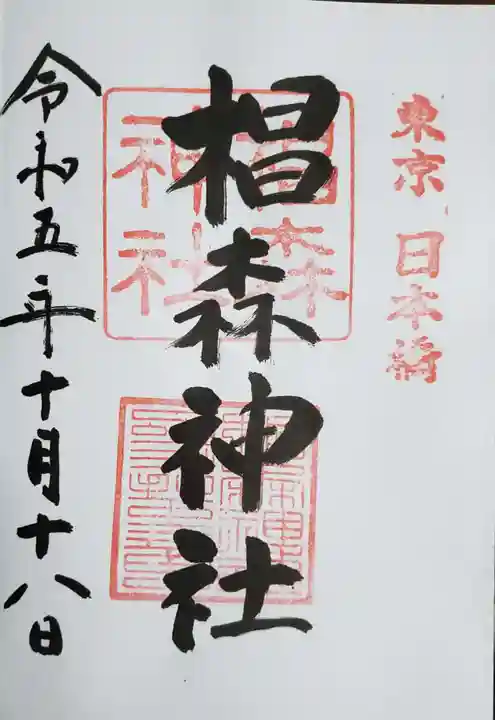 東京 日本橋
椙森神社
椙森
神社
令和五年十月十八日